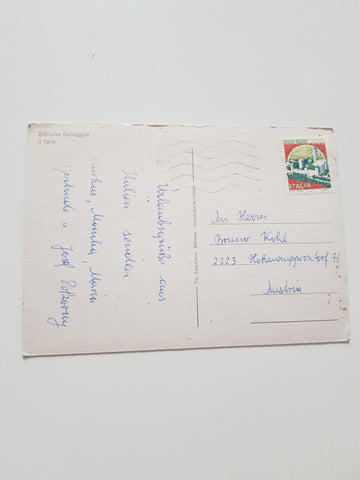 Bibione Spiaggia
Il faro
Urlaubsgrüße aus
Italien senden
Markus, Monika, Maria
Gertrude u. Josef
ITALIA
An Herrn
Bruno Kohl
2223 Hohenruppersdorf 76
Austria